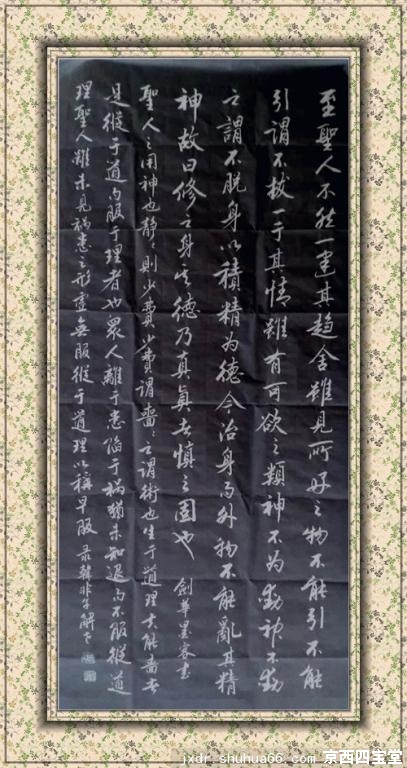 至聖人不然一建其趨舍雖見所好之物不能引不能
引謂不拔一于其情雖有可欲之類神不為動神不動
之謂不脱身以積精為德今治身而外物不能亂其精
神故曰修之身其德乃真真者慎之固也 劍華墨客書
聖人之用神也静〻則少費少費謂嗇〻之謂術也生于道理夫能嗇者
是從于道而服于理者也眾人離于患陷于禍猶未知退而不服從道
理聖人雖未見禍患之形虛無服從于道理以稱早服 韓非子解老
jxdr.shuhua66.com 京西四宝堂